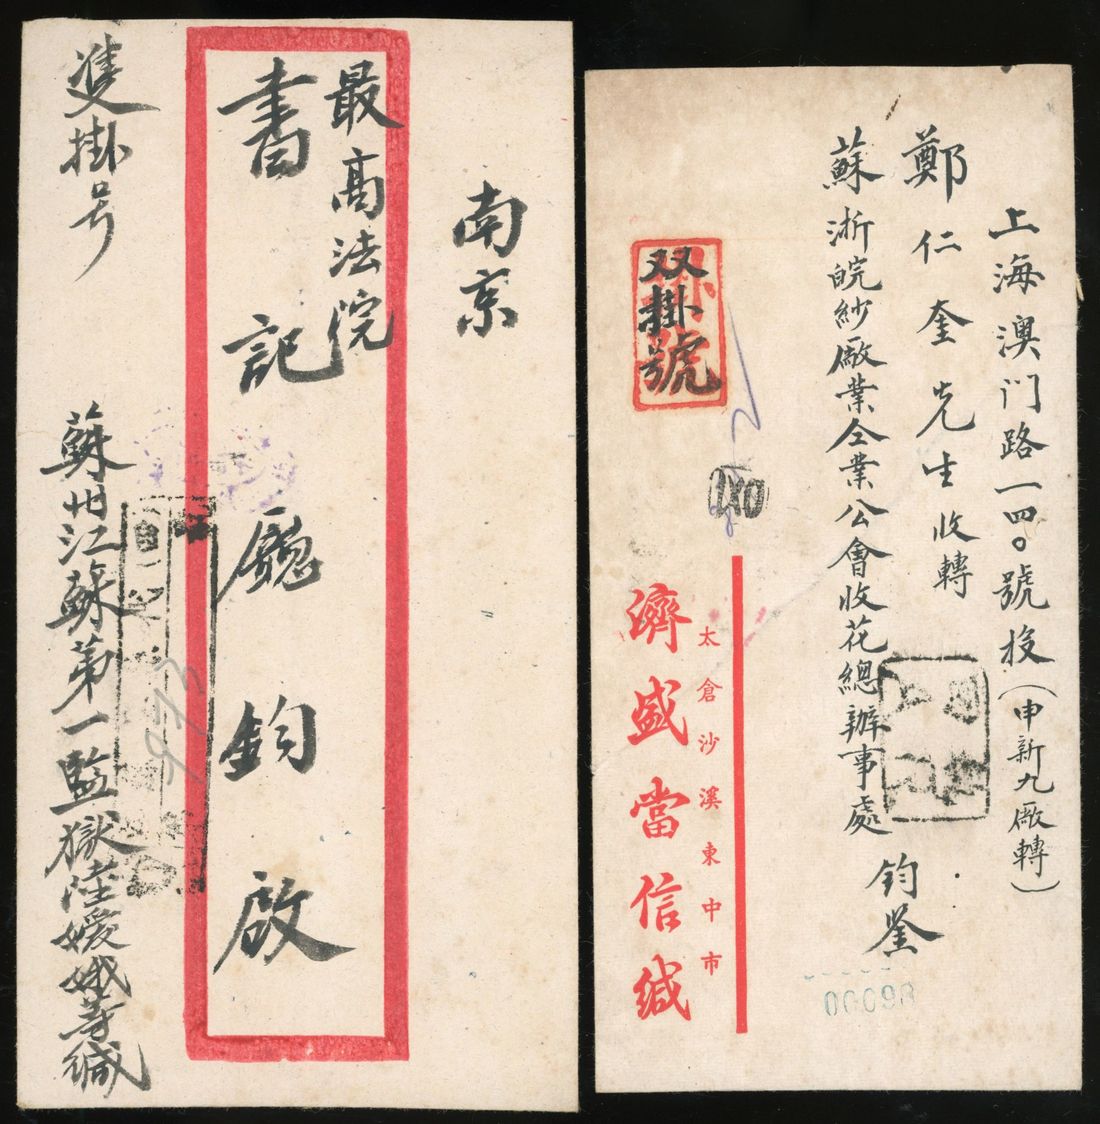 南京
最高法院
書記廳鈞啟
雙掛号
蘇州江蘇第一監獄陸媛娥等緘
上海澳门路一四〇號投(申新九廠轉)
鄭仁奎先生收轉
蘇浙皖紗廠業仝業公會收花總辦事處
鈞鑒
双掛号
號
太倉沙溪東中市
濟盛當信緘